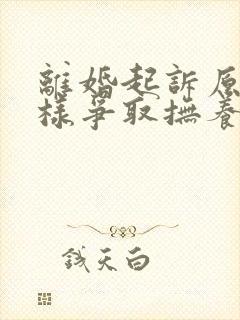 離婚起訴原
樣爭取撫養
錢天白